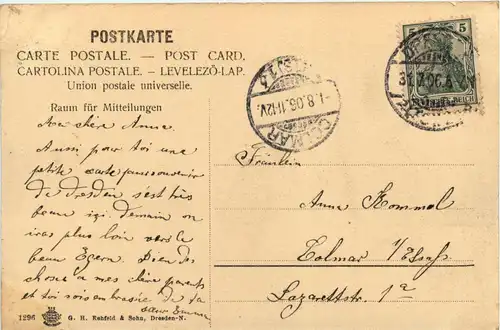 POSTKARTE
CARTE POSTALE. — POST CARD.
CARTOLINA POSTALE. – LEVELEZŐ-LAP.
Union postale universelle.
Raum für Mitteilungen
Ma chère Anna
Aussi pour toi une
petite carte pour souvenir
de Dresden c'est très
beau ici. Demain on
iras plus loin vers le
beau Egern. Bien des
choses a mes chère parents
et toi sois embrassée de ta
sœur Emma
5 5
DRESDEN
31.7.06.
REICH
COLMAR
-1.8.06.11-12V.
Fräulein
Anna Rommel
Colmar i/Elsaß
Lazarettstr. 1a
1296 G. H. Rehfeld & Sohn, Dresden-N.